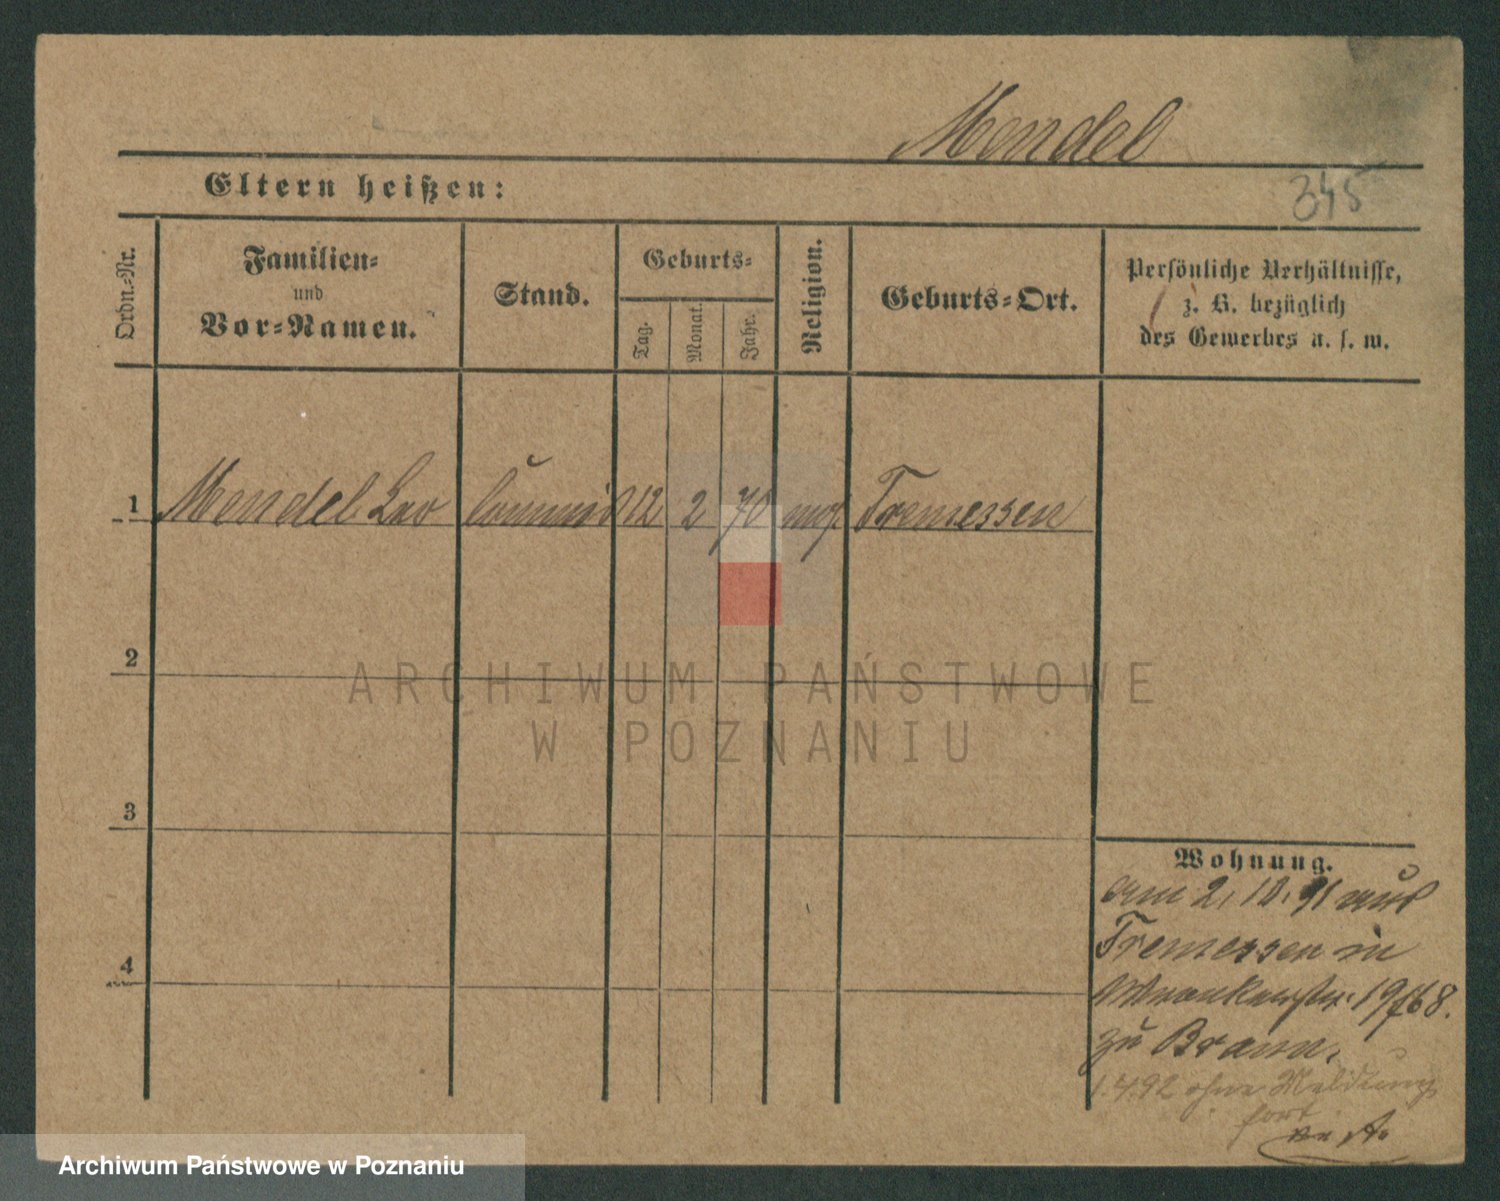 Mendel
345
Eltern heißen:
Ordn.-Nr.
Familien-
und
Vor-Namen.
Stand.
Geburts-
Tag.
Monat.
Jahr.
Religion.
Geburts-Ort.
Persönliche Verhältnisse,
z. B. bezüglich
des Gewerbes u. s. w.
1 Mendel Leo 12 2 70 mos. Tremessen
2
3
4
Wohnung.
am 2. 10. 91 aus
Tremessen in
19/
zu Braun.
1.4.92 ohne Meldung
fort
ARCHIWUM PAŃSTWOWE
W POZNANIU
Archiwum Państwowe w Poznaniu